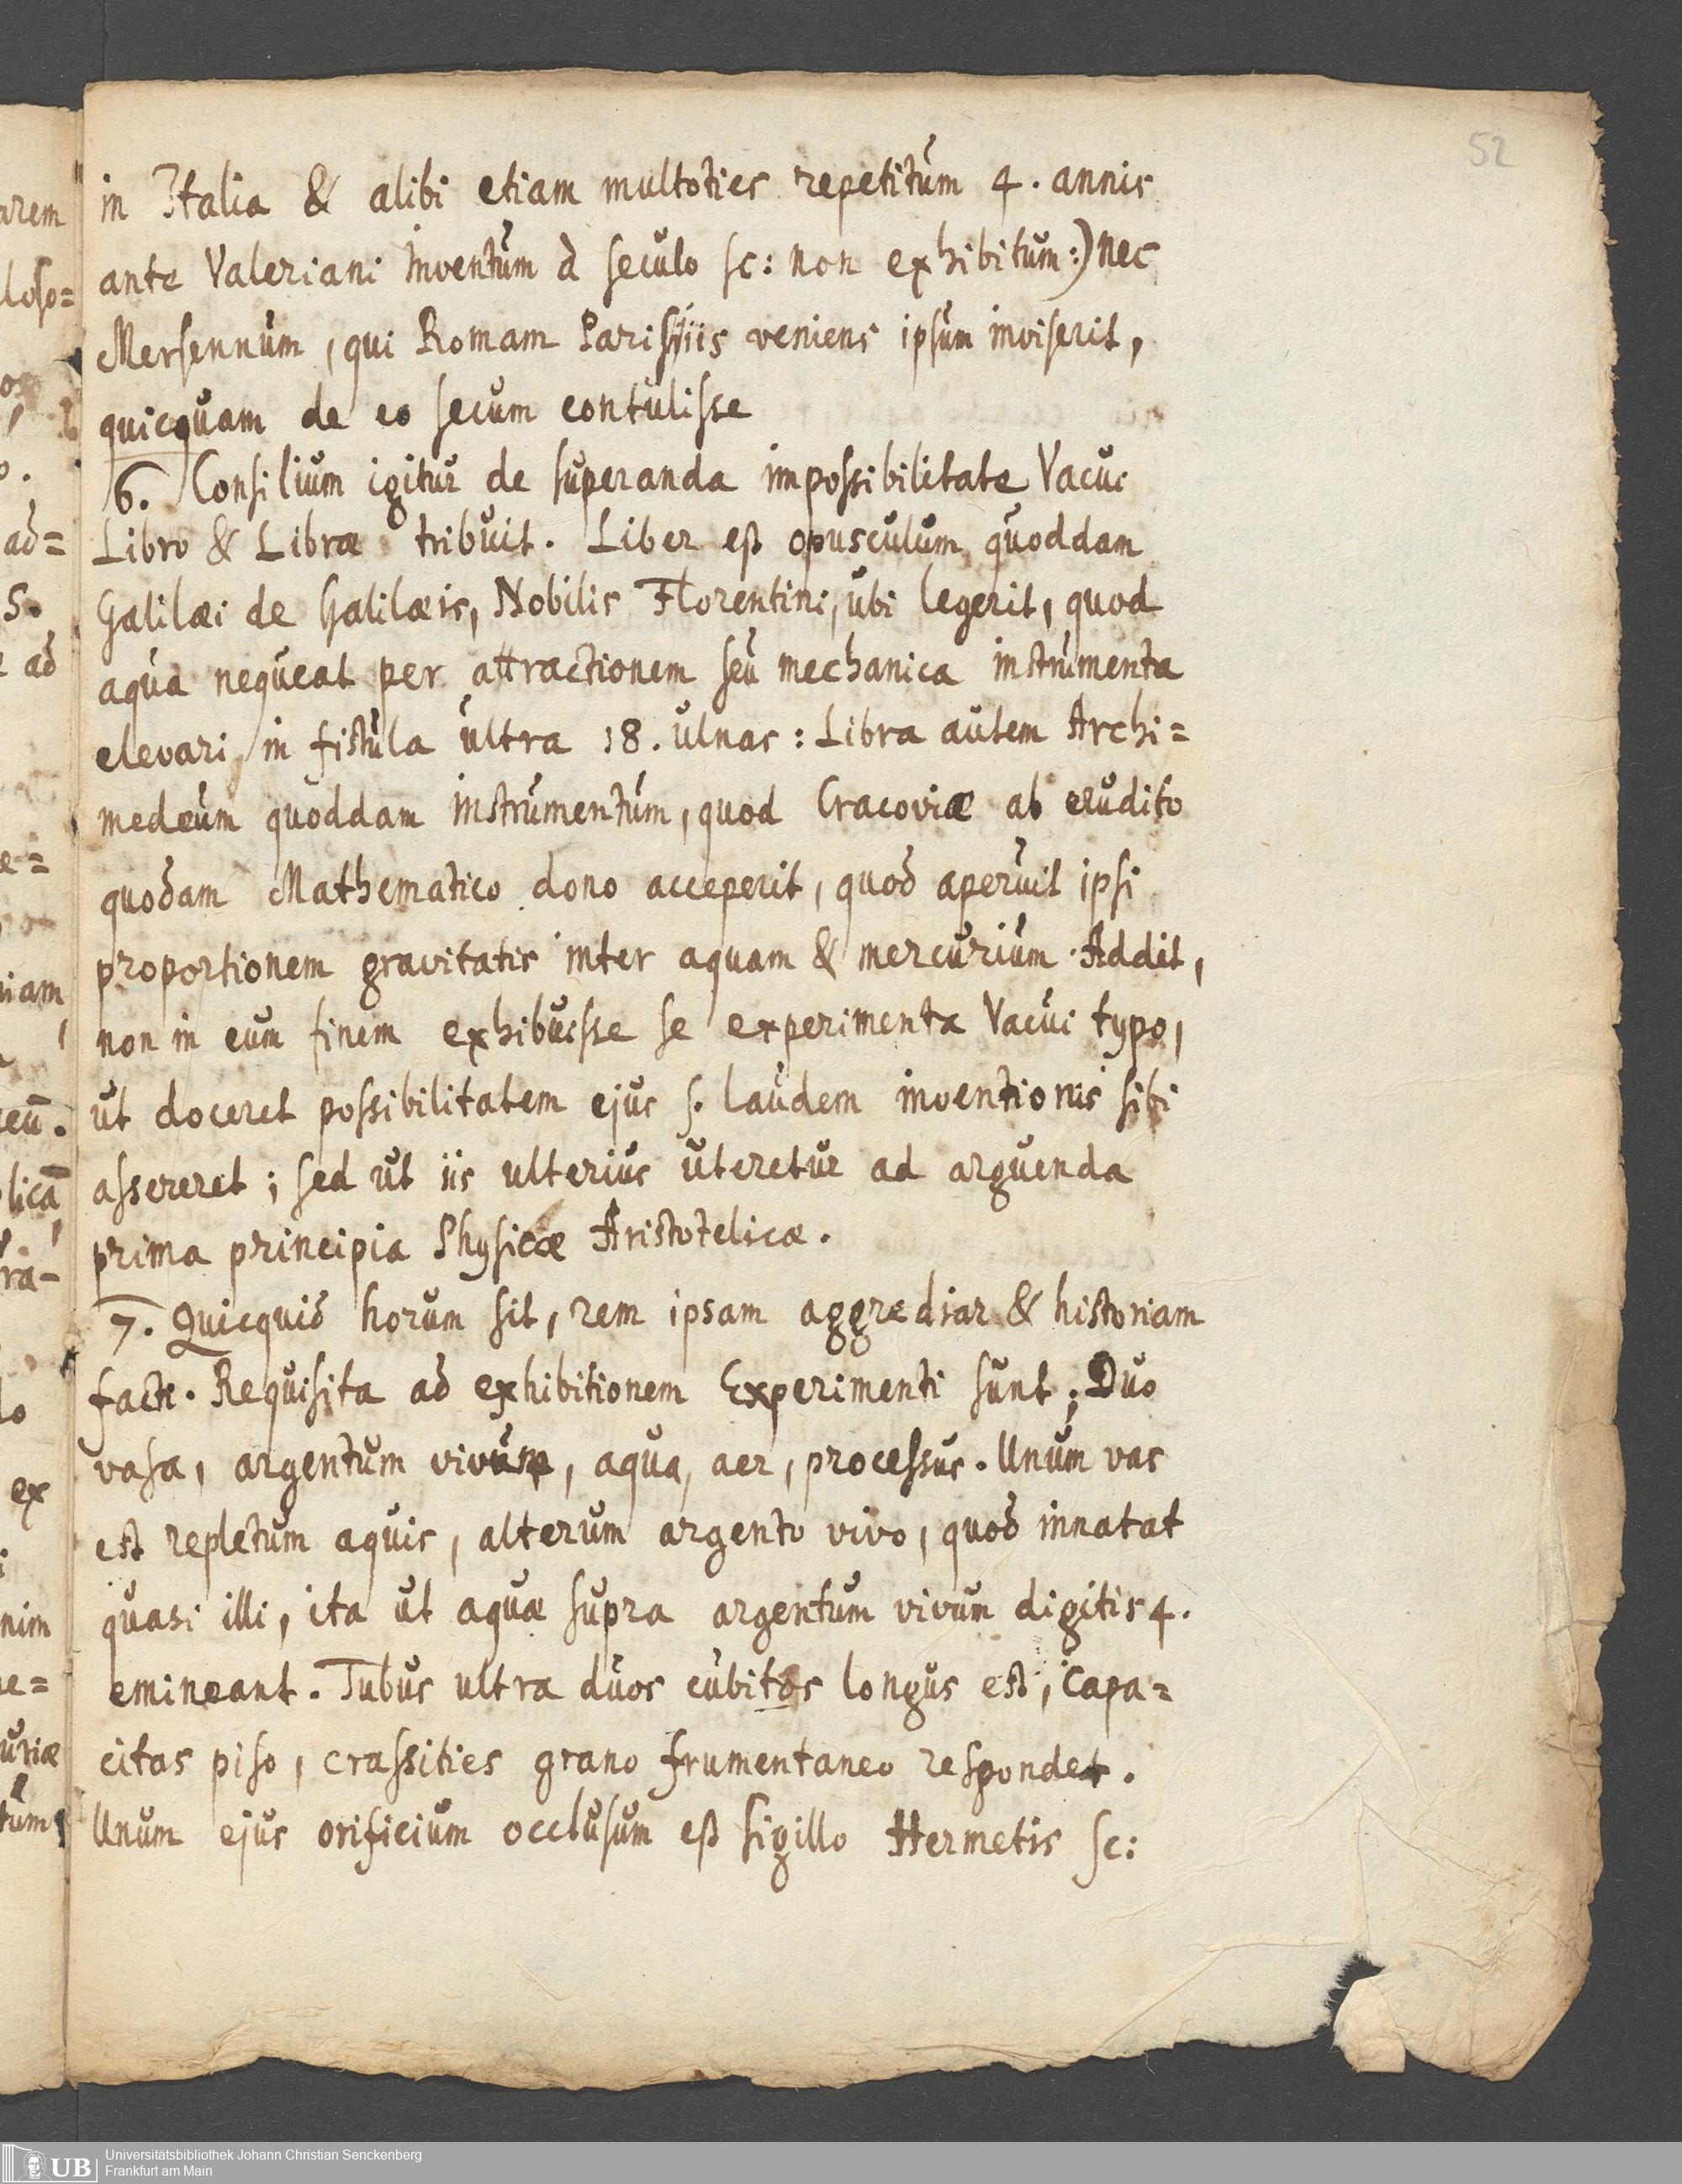 52
in Italia & alibi etiam multoties repetitum 4. annis
ante Valeriani Inventum à seculo sc: non exhibitum:) nec
Mersennum, qui Romam Parisiis veniens ipsum inviserit,
quicquam de eo secum contulisse
6. Consilium igitur de superanda impossibilitate Vacui
Libro & Libræ tribuit. Liber est opusculum quoddam
Galilæi de Galilæis, Nobilis Florentini, ubi legerit, quod
aqua nequeat per attractionem seu mechanica instrumenta
elevari in fistula ultra 18. ulnas: Libra autem Archi=
medeum quoddam instrumentum, quod Cracoviæ ab erudito
quodam Mathematico dono acceperit, quod aperuit ipsi
proportionem gravitatis inter aquam & mercurium. Addit,
non in eum finem exhibuisse se experimenta Vacui typo,
ut doceret possibilitatem ejus s. laudem inventionis sibi
assereret; sed ut iis ulterius uteretur ad arguenda
prima principia Physicæ Aristotelicæ.
7. Quicquid horum sit, rem ipsam aggrediar & historiam
facti. Requisita ad exhibitionem Experimenti sunt; Duo
vasa, argentum vivum, aqua, aer, processus. Unum vas
est repletum aquis, alterum argento vivo, quod innatat
quasi illi, ita ut aquæ supra argentum vivum digitis 4.
emineant. Tubus ultra duos cubitos longus est, Capa=
citas piso, crassities grano frumentaneo respondet.
Unum ejus orificium occlusum est sigillo Hermetis sc:
arem
loso=
ad=
5.
ad
e=
niam,
eū.
licā,
ra-
lo
ex
nim
e=
uriæ
tum
UB
Universitätsbibliothek Johann Christian Senckenberg
Frankfurt am Main